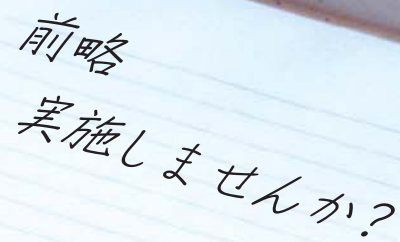 前略
実施しませんか?